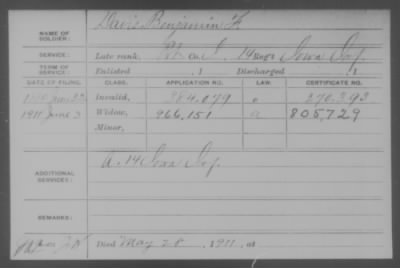 NAME OF SOLDIER: Davis Benjamin F
SERVICE: Late rank, Pvt Co. I, 14 Reg't Iowa Inf.
TERM OF SERVICE: Enlisted , 1 Discharged , 1
DATE OF FILING. CLASS. APPLICATION NO. LAW. CERTIFICATE NO.
Invalid, 384.079 276.393
1911 June 3 Widow, 966.151 a 805,729
Minor,
ADDITIONAL SERVICES: A. 14 Iowa Inf.
REMARKS:
Died May 28, 1911, at